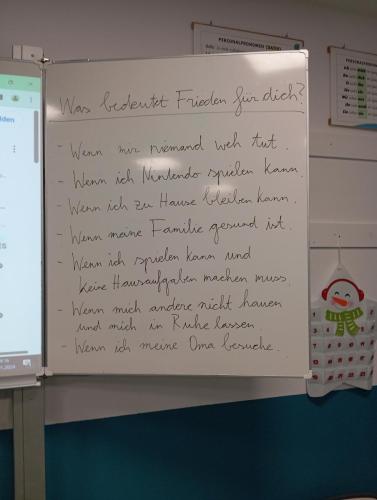 Was bedeutet Frieden für dich?
- Wenn mir niemand weh tut.
- Wenn ich Nintendo spielen kann.
- Wenn ich zu Hause bleiben kann.
- Wenn meine Familie gesund ist.
- Wenn ich spielen kann und
keine Hausaufgaben machen muss.
- Wenn mich andere nicht hauen
und mich in Ruhe lassen.
- Wenn ich meine Oma besuche.
PERSONALPRONOMEN